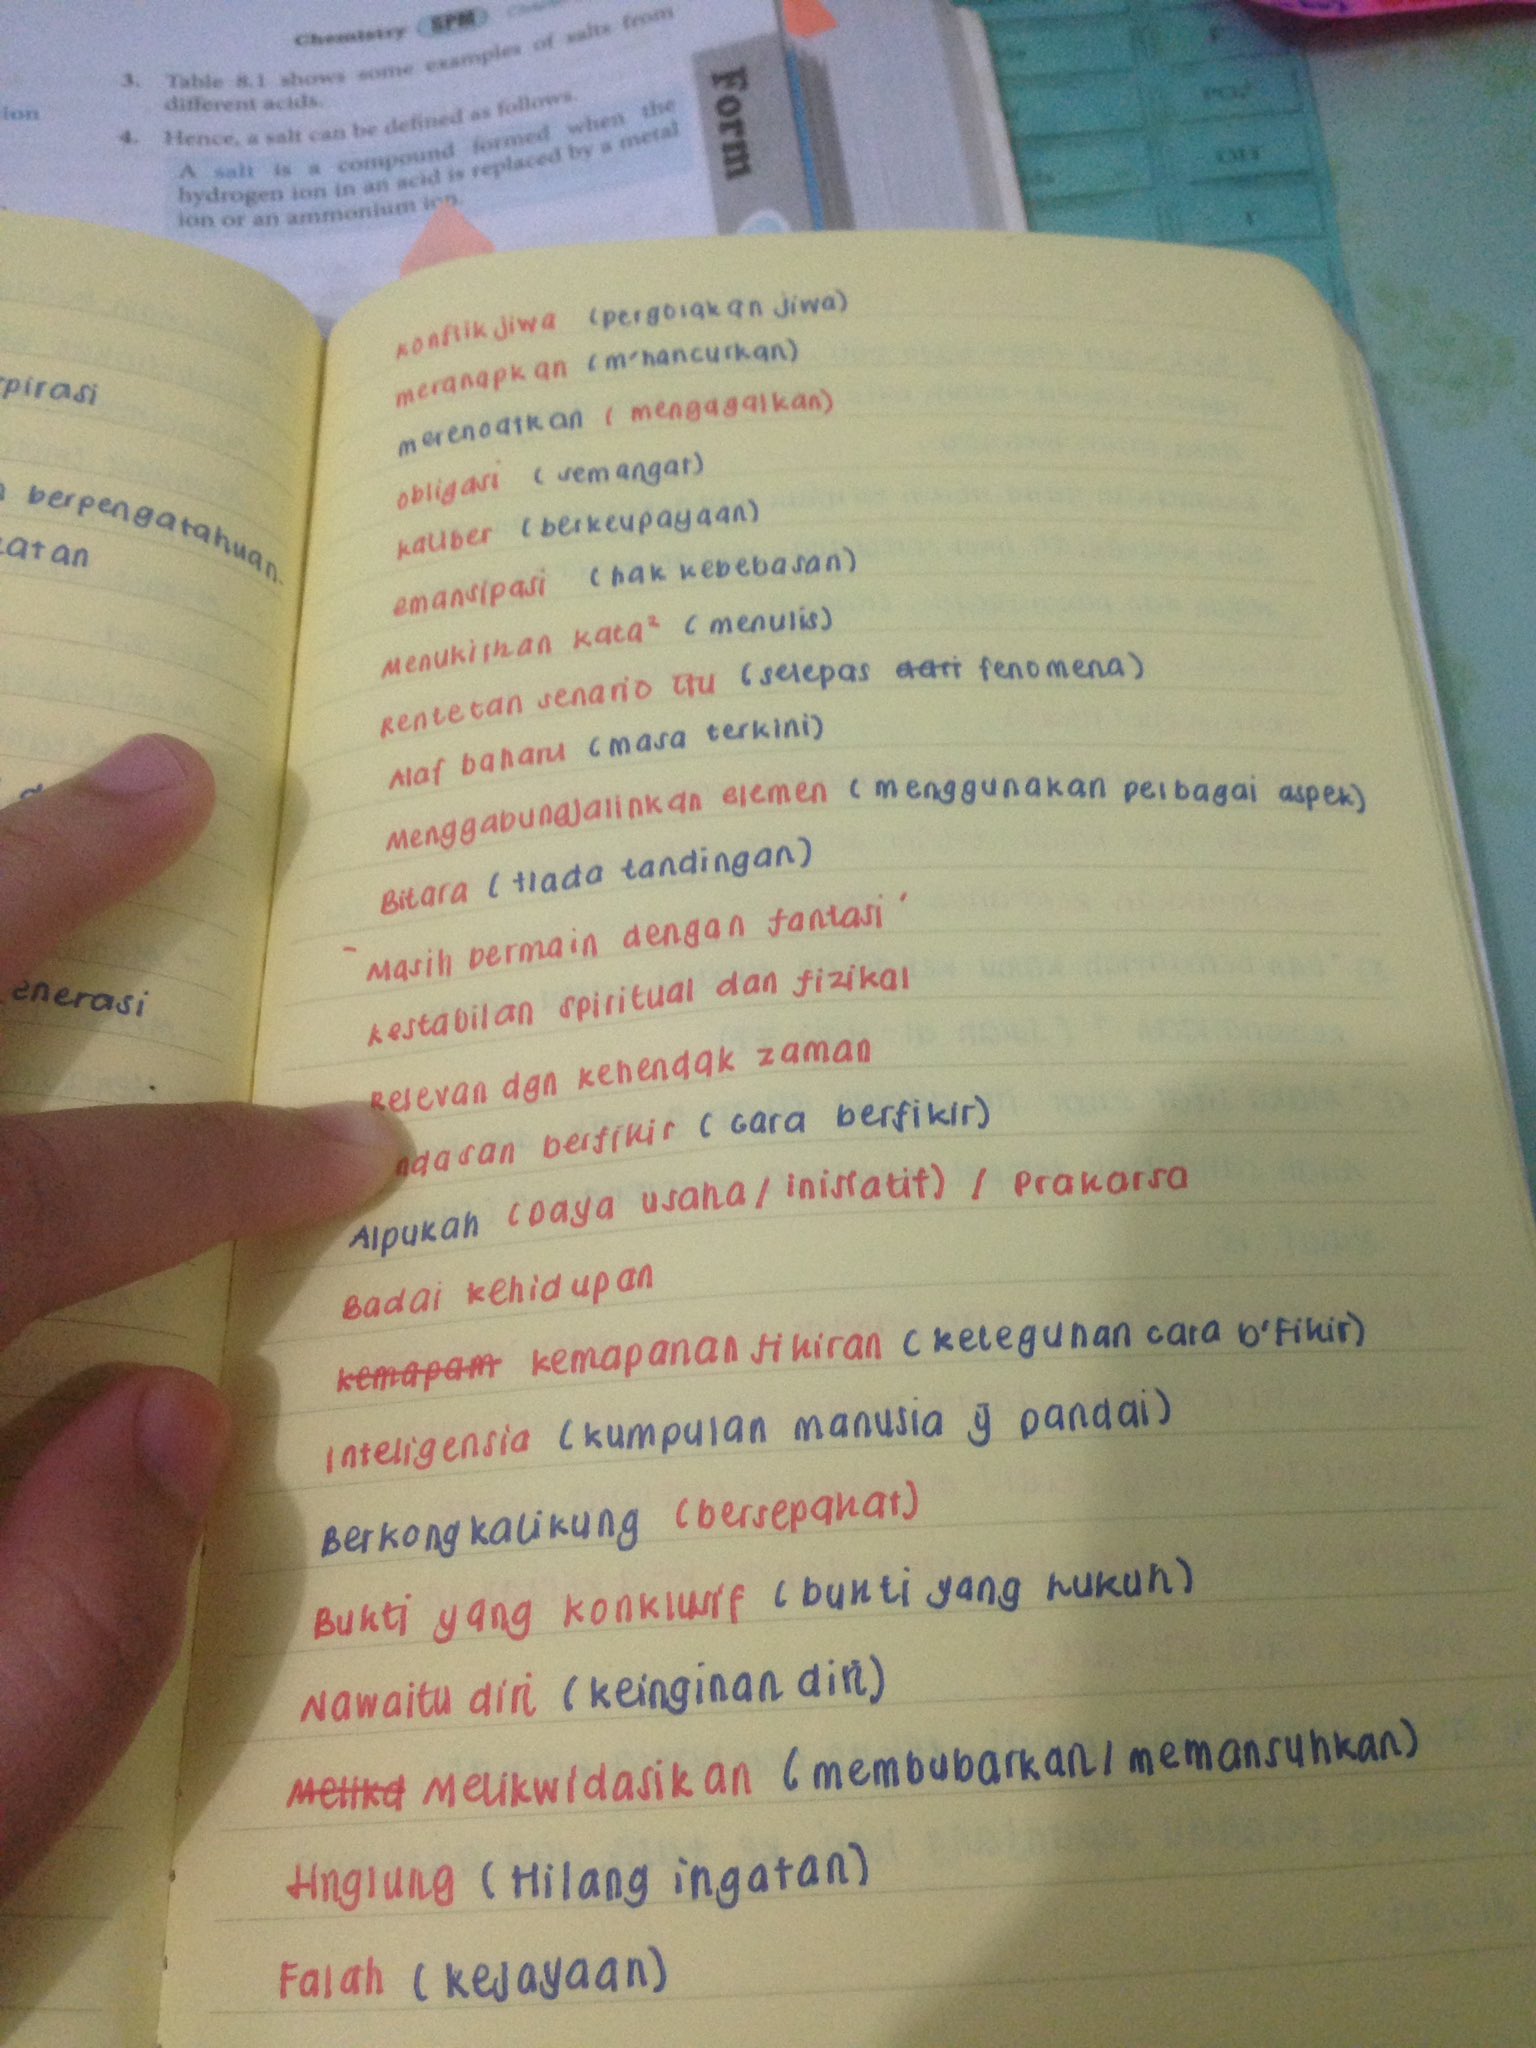 Chemistry SPM
3. Table 8.1 shows some examples of salts from
different acids.
4. Hence, a salt can be defined as follows.
A salt is a compound formed when the
hydrogen ion in an acid is replaced by a metal
ion or an ammonium ion.
Form
ion
pirasi
berpengatahuan.
atan
enerasi
konflik jiwa (pergolakan jiwa)
meranapkan (m'hancurkan)
merencatkan (mengagalkan)
obligasi (semangat)
kaliber (berkeupayaan)
emansipasi (hak kebebasan)
Menukilkan kata² (menulis)
Rentetan senario itu (selepas dari fenomena)
Alaf baharu (masa terkini)
Menggabungjalinkan elemen (menggunakan pelbagai aspek)
Bitara (tiada tandingan)
- Masih bermain dengan fantasi '
kestabilan spiritual dan fizikal
Relevan dgn kehendak zaman
ndasan berfikir (cara berfikir)
Alpukah (Daya usaha / inisiatif) / Prakarsa
Badai kehidupan
kemapam kemapanan fikiran (ketegunan cara b'fikir)
Inteligensia (kumpulan manusia yg pandai)
Berkongkalikung (bersepakat)
Bukti yang konklusif (bukti yang kukuh)
Nawaitu diri (keinginan diri)
Melikd Melikwidasikan (membubarkan / memansuhkan)
Hnglung (Hilang ingatan)
Falah (kejayaan)